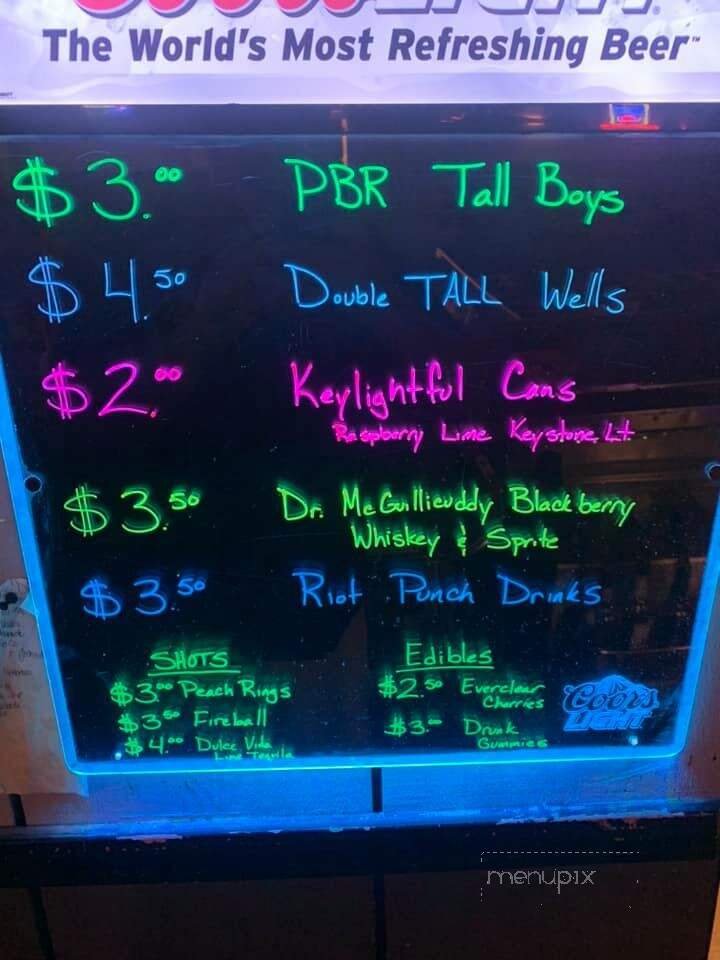 The World's Most Refreshing Beer™
$3.00 PBR Tall Boys
$4.50 Double TALL Wells
$2.00 Keylightful Cans
Raspberry Lime Keystone Lt.
$3.50 Dr. McGuillicuddy Blackberry
Whiskey & Sprite
$3.50 Riot Punch Drinks
SHOTS
$3.00 Peach Rings
$3.50 Fireball
$4.00 Dulce Vida
Lime Tequila
Edibles
$2.50 Everclear
Cherries
$3.- Drunk
Gummies
Coors
LIGHT
menupix